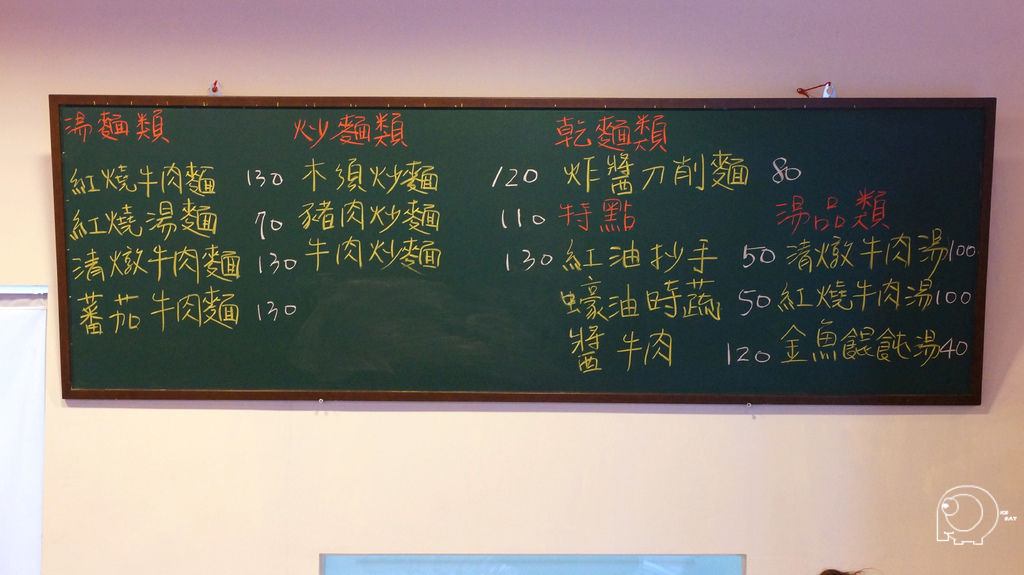 湯麵類
紅燒牛肉麵 130
紅燒湯麵 70
清燉牛肉麵 130
蕃茄牛肉麵 130
炒麵類
木須炒麵 120
豬肉炒麵 110
牛肉炒麵 130
乾麵類
炸醬刀削麵 80
特點
紅油抄手 50
蠔油時蔬 50
醬牛肉 120
湯品類
清燉牛肉湯 100
紅燒牛肉湯 100
金魚餛飩湯 40